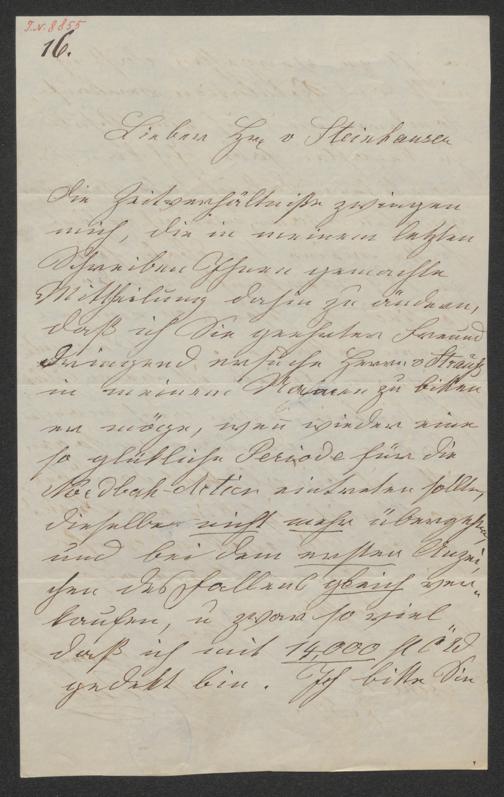 I.N. 8855
16.
Lieber Hr v Steinhauser
die Zeitverhältniße zwingen
mich, die in meinem letzten
Schreiben Ihnen gemachte
Mittheilung dahin zu ändern,
daß ich Sie geehrter Freund
dringend ersuche Herrn v Strauß
in meinem Namen zu bitten
er möge, wen wieder eine
so glükliche Periode für die
Nordbah-Actien eintreten sollte,
dieselbe nicht mehr übergehen
und bei dem ersten Anzei-
chen des Fallens gleich ver-
kaufen, u zwar so viel
daß ich mit 14,000 fl
gedekt bin. Ich bitte Sie